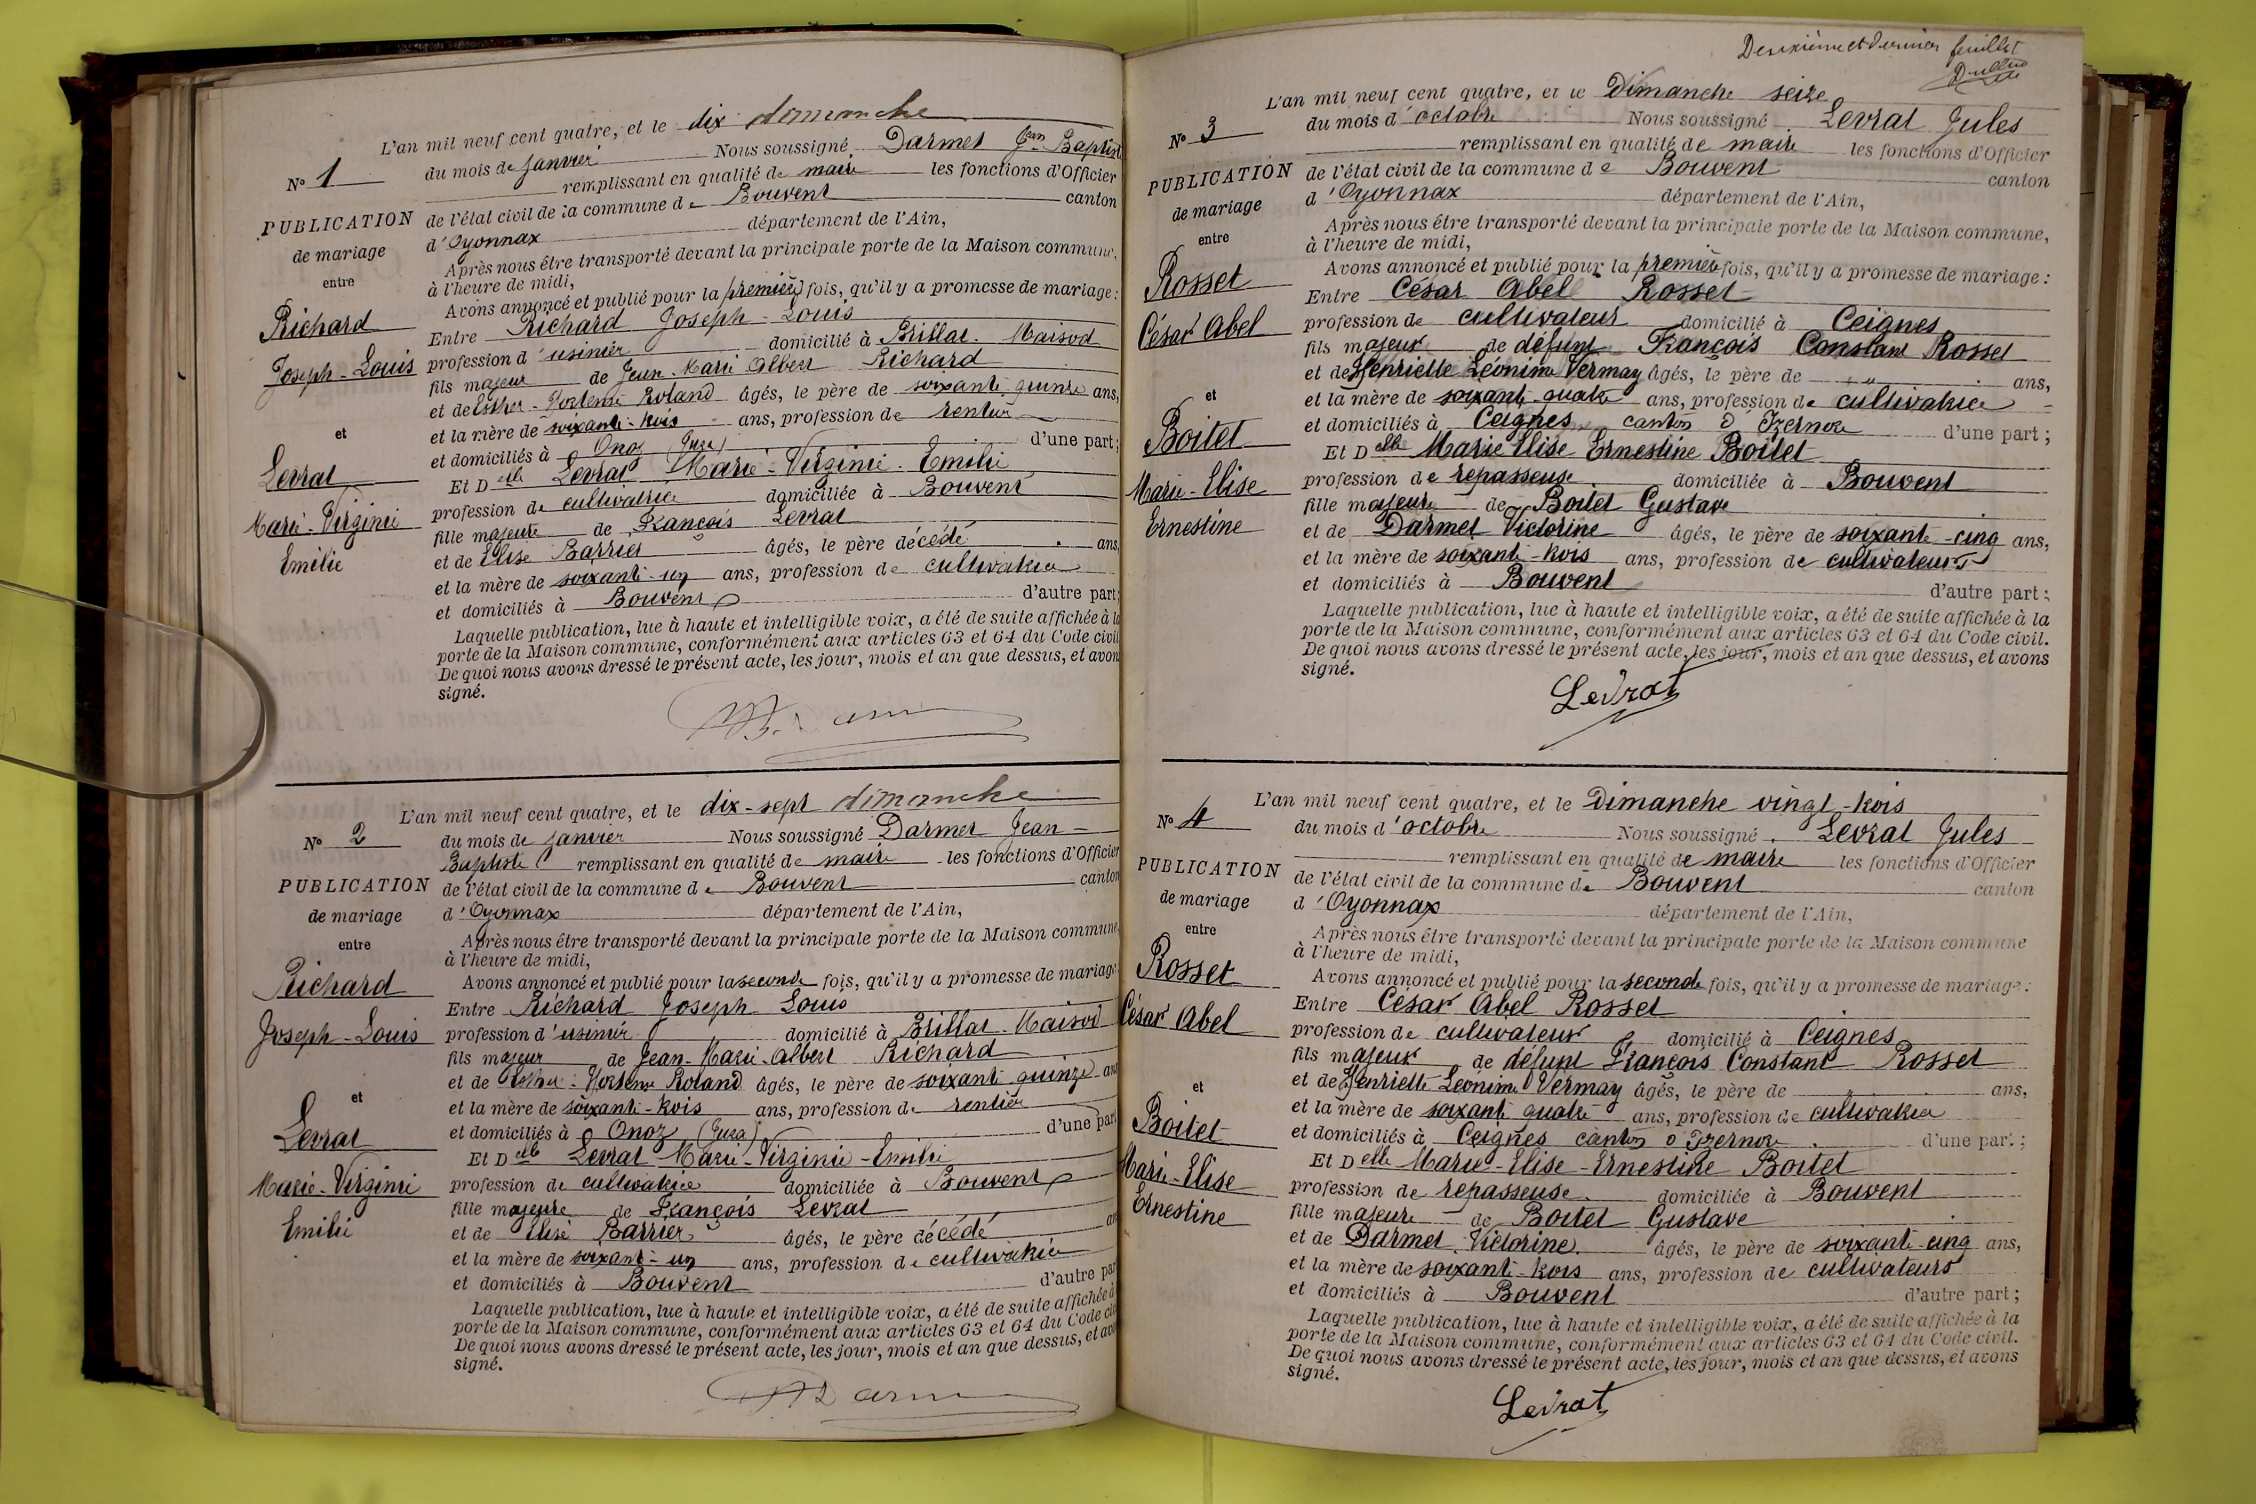 N° 1
PUBLICATION
de mariage
entre
Richard
Joseph-Louis
et
Levrat
Marie-Virginie
Emilie
L'an mil neuf cent quatre, et le dix dimanche
du mois de janvier Nous soussigné Darmet Jean Baptiste
remplissant en qualité de maire les fonctions d'Officier
de l'état civil de la commune de Bouvent canton
d'Oyonnax département de l'Ain,
Après nous être transporté devant la principale porte de la Maison commune,
à l'heure de midi,
Avons annoncé et publié pour la première fois, qu'il y a promesse de mariage :
Entre Richard Joseph-Louis
profession d'usinier domicilié à Brillat. Maisod
fils majeur de Jean-Marie Albert Richard
et de Esther-Hortense Roland âgés, le père de soixante quinze ans,
et la mère de soixante-trois ans, profession de rentier
et domiciliés à Onoz (Jura) d'une part ;
Et Delle Levrat Marie-Virginie-Emilie
profession de cultivatrice domiciliée à Bouvent
fille majeure de François Levrat
et de Elise Barrier âgés, le père décédé ans,
et la mère de soixante-un ans, profession de cultivatrice
et domiciliés à Bouvent d'autre part ;
Laquelle publication, lue à haute et intelligible voix, a été de suite affichée à la
porte de la Maison commune, conformément aux articles 63 et 64 du Code civil
De quoi nous avons dressé le présent acte, les jour, mois et an que dessus, et avon
signé.
N° 2
PUBLICATION
de mariage
entre
Richard
Joseph-Louis
et
Levrat
Marie-Virginie
Emilie
L'an mil neuf cent quatre, et le dix-sept dimanche
du mois de janvier Nous soussigné Darmet Jean-
Baptiste remplissant en qualité de maire les fonctions d'Officier
de l'état civil de la commune de Bouvent canton
d'Oyonnax département de l'Ain,
Après nous être transporté devant la principale porte de la Maison commune,
à l'heure de midi,
Avons annoncé et publié pour la seconde fois, qu'il y a promesse de mariage
Entre Richard Joseph Louis
profession d'usinier domicilié à Brillat. Maisod
fils majeur de Jean-Marie-Albert Richard
et de Esther-Hortense Roland âgés, le père de soixante quinze ans
et la mère de soixante-trois ans, profession de rentier
et domiciliés à Onoz (Jura) d'une part
Et Delle Levrat Marie-Virginie-Emilie
profession de cultivatrice domiciliée à Bouvent
fille majeure de François Levrat
et de Elise Barrier âgés, le père décédé an
et la mère de soixante-un ans, profession de cultivatrice
et domiciliés à Bouvent d'autre par
Laquelle publication, lue à haute et intelligible voix, a été de suite affichée à
porte de la Maison commune, conformément aux articles 63 et 64 du Code civ
De quoi nous avons dressé le présent acte, les jour, mois et an que dessus, et avo
signé.
Deuxième et dernier feuillet
N° 3
PUBLICATION
de mariage
entre
Rosset
César Abel
et
Boitet
Marie-Elise
Ernestine
L'an mil neuf cent quatre, et le Dimanche seize
du mois d'octobre Nous soussigné Levrat Jules
remplissant en qualité de maire les fonctions d'Officier
de l'état civil de la commune de Bouvent canton
d'Oyonnax département de l'Ain,
Après nous être transporté devant la principale porte de la Maison commune,
à l'heure de midi,
Avons annoncé et publié pour la première fois, qu'il y a promesse de mariage :
Entre César Abel Rosset
profession de cultivateur domicilié à Ceignes
fils majeur de défunt François Constant Rosset
et de Henriette Léonime Vermay âgés, le père de " ans,
et la mère de soixante-quatre ans, profession de cultivatrice
et domiciliés à Ceignes canton d'Izernore d'une part ;
Et Delle Marie Elise Ernestine Boitet
profession de repasseuse domiciliée à Bouvent
fille majeure de Boitet Gustave
et de Darmet Victorine âgés, le père de soixante-cinq ans,
et la mère de soixante-trois ans, profession de cultivateurs
et domiciliés à Bouvent d'autre part ;
Laquelle publication, lue à haute et intelligible voix, a été de suite affichée à la
porte de la Maison commune, conformément aux articles 63 et 64 du Code civil.
De quoi nous avons dressé le présent acte, les jour, mois et an que dessus, et avons
signé.
Levrat
N° 4
PUBLICATION
de mariage
entre
Rosset
César Abel
et
Boitet
Marie-Elise
Ernestine
L'an mil neuf cent quatre, et le Dimanche vingt-trois
du mois d'octobre Nous soussigné Levrat Jules
remplissant en qualité de maire les fonctions d'Officier
de l'état civil de la commune de Bouvent canton
d'Oyonnax département de l'Ain,
Après nous être transporté devant la principale porte de la Maison commune
à l'heure de midi,
Avons annoncé et publié pour la seconde fois, qu'il y a promesse de mariage :
Entre César Abel Rosset
profession de cultivateur domicilié à Ceignes
fils majeur de défunt François Constant Rosset
et de Henriette Léonime Vermay âgés, le père de " ans,
et la mère de soixante quatre ans, profession de cultivatrice
et domiciliés à Ceignes canton d'Izernore d'une part ;
Et Delle Marie-Elise-Ernestine Boitet
profession de repasseuse domiciliée à Bouvent
fille majeure de Boitet Gustave
et de Darmet Victorine âgés, le père de soixante-cinq ans,
et la mère de soixante-trois ans, profession de cultivateurs
et domiciliés à Bouvent d'autre part ;
Laquelle publication, lue à haute et intelligible voix, a été de suite affichée à la
porte de la Maison commune, conformément aux articles 63 et 64 du Code civil.
De quoi nous avons dressé le présent acte, les jour, mois et an que dessus, et avons
signé.
Levrat